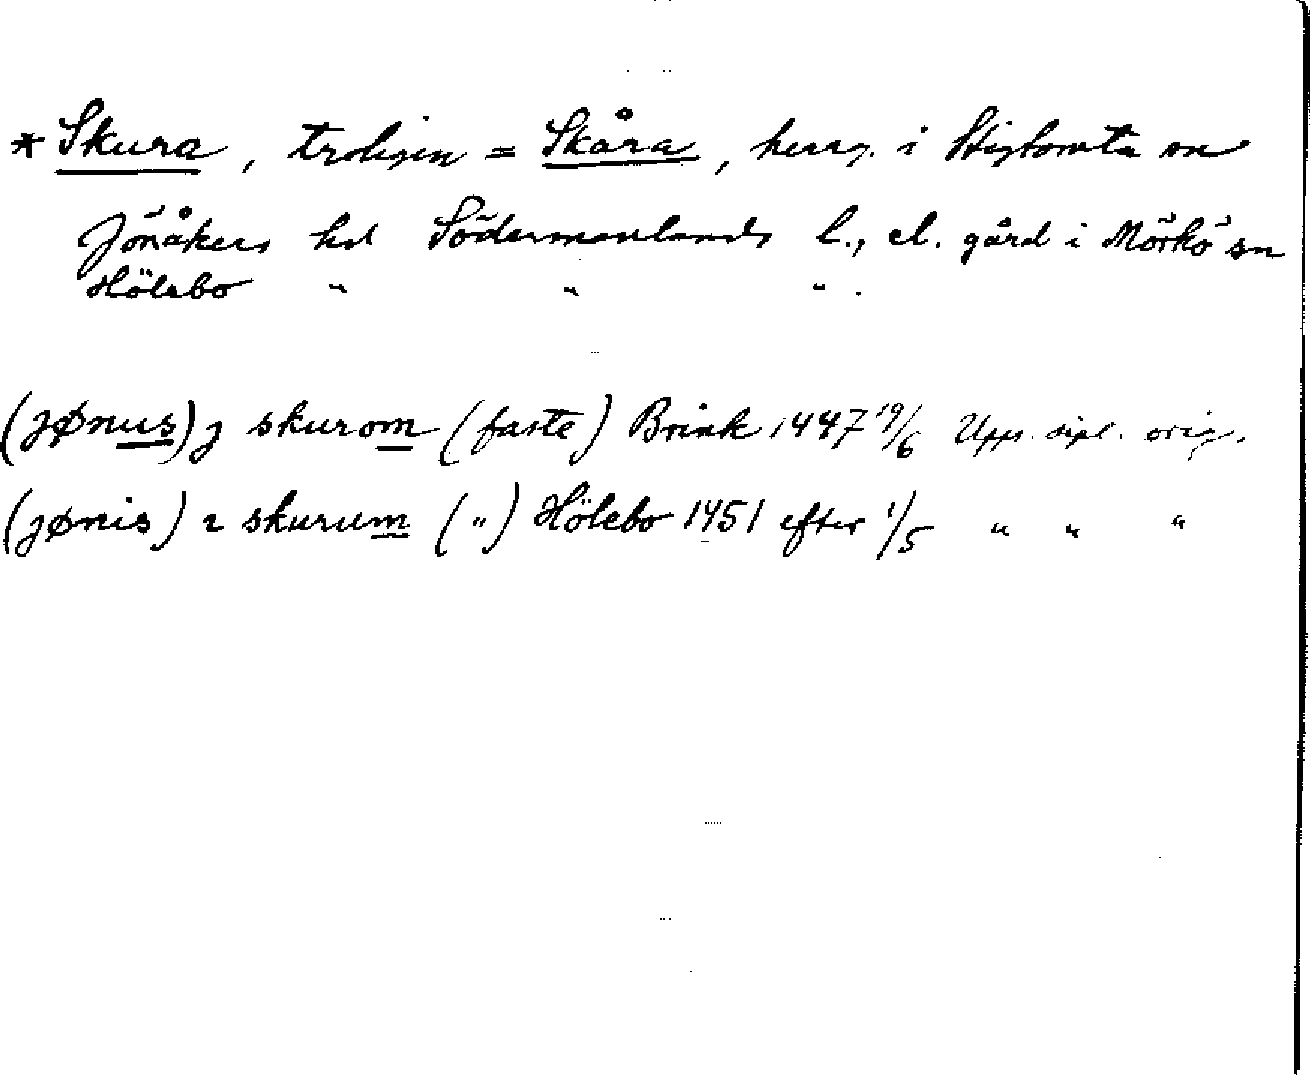 * Skura, troligen = Skåra, herrg. i Stigtomta sn
Jönåkers hd Södermanlands l., el. gård i Mörkö sn
Hölebo " " ".
(jønus) j skurom (faste) Brink 1447 19/6 Upps. dipl. orig.
(jønis) i skurum (") Hölebo 1451 efter 1/5 " " "